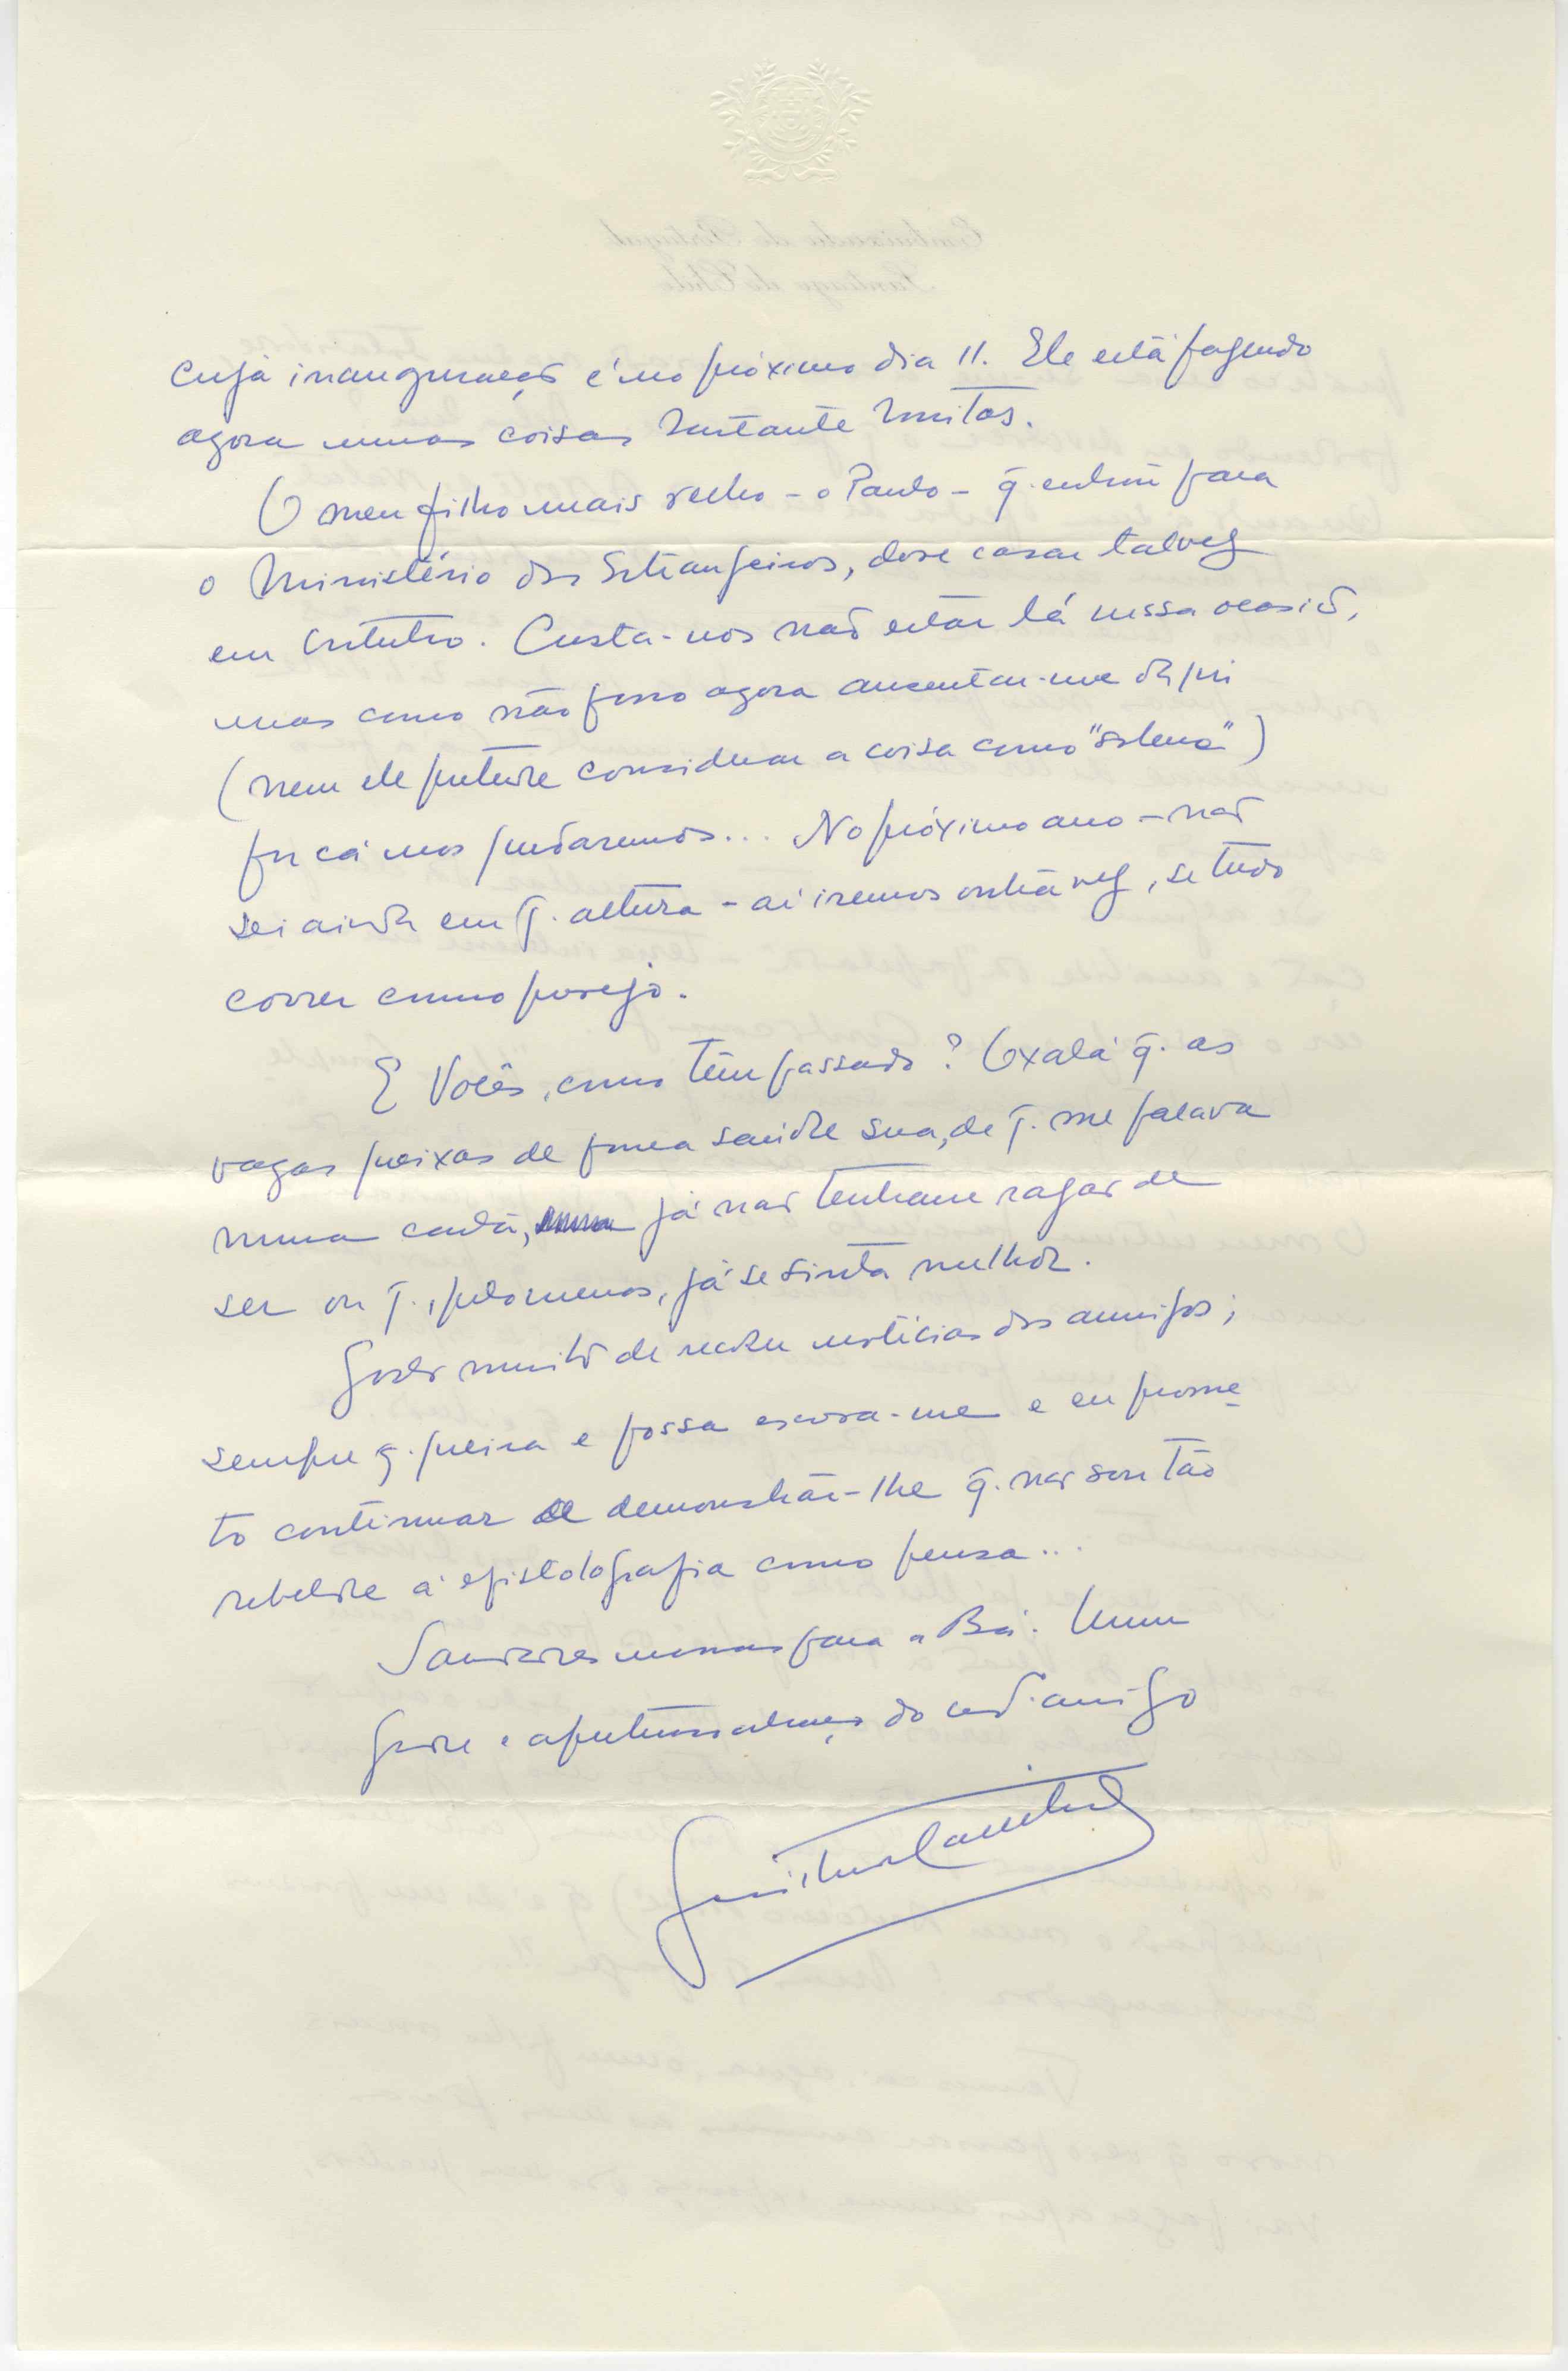 cuja inauguração é no próximo dia 11. Ele está fazendo
agora umas coisas bastante bonitas.
O meu filho mais velho - o Paulo - q. entrou para
o Ministério dos Estrangeiros, deve casar talvez
em Outubro. Custa-nos não estar lá nessa ocasião,
mas como não posso agora ausentar-me daqui
(nem ele pretende considerar a coisa como "solene")
por cá nos quedaremos... No próximo ano - não
sei ainda em q. altura - aí iremos outra vez, se tudo
correr como desejo.
E Vocês, como têm passado? Oxalá q. as
vagas queixas de pouca saúde sua, de q. me falava
numa carta, já não tenham razão de
ser ou q., pelo menos, já se sinta melhor.
Gosto muito de receber notícias dos amigos;
sempre q. queira e possa escreva-me e eu prome
to continuar a demonstrar-lhe q. não sou tão
rebelde à epistolografia como pensa...
Saudades nossas para a Bá. Um
grande e afectuoso abraço do seu amigo